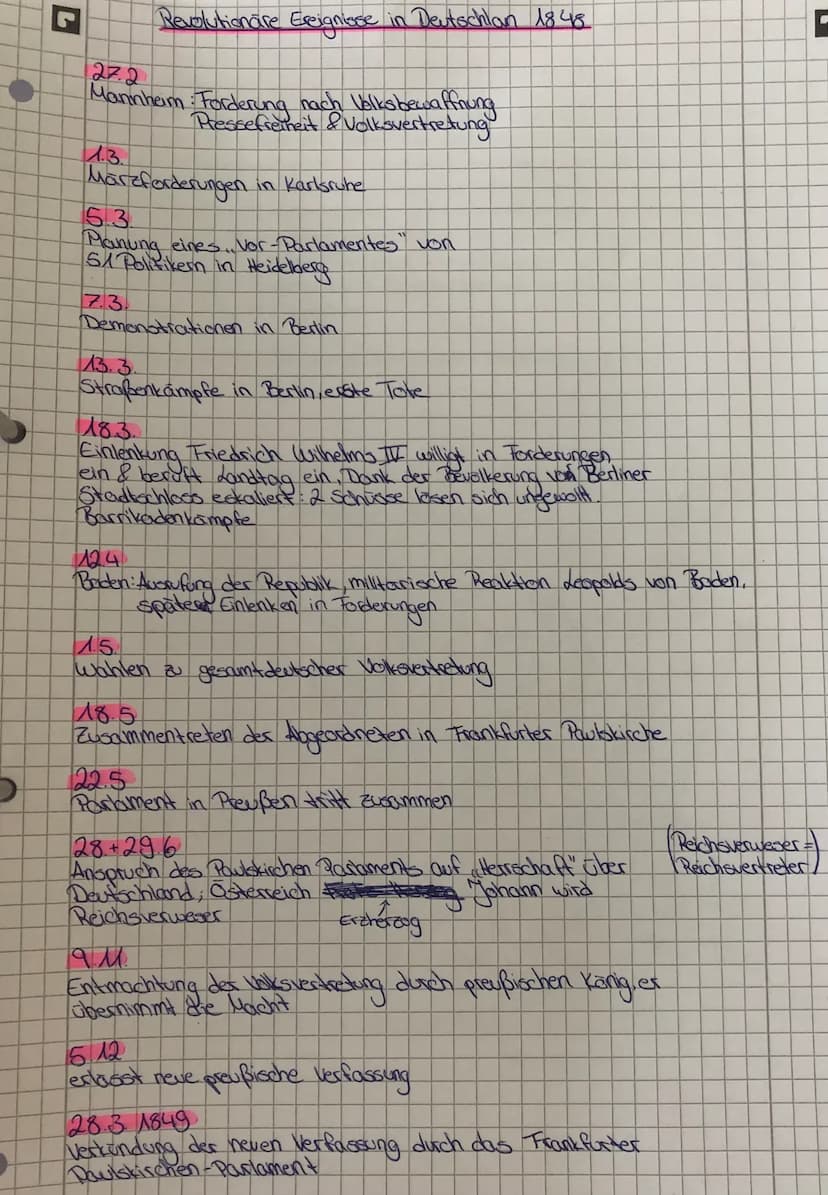 Revolutionäre Ereignisse in Deutschlan 1848
27.2
Mannheim: Forderung nach Volksbewaffnung
Pressefreiheit & Volksvertretung
1.3.
Märzforderungen in Karlsruhe
5.3
Planung eines „Vor-Parlamentes" von
51 Politikern in Heidelberg
7.3.
Demonstrationen in Berlin
13.3.
Straßenkämpfe in Berlin, erste Tote
18.3.
Einlenkung Friedrich Wilhelms IV willigt in Forderungen
ein & beruft Landtag ein, Dank der Bevölkerung vor Berliner
Stadtschloss eskaliert: 2 Schüsse lösen sich ungewollt
Barrikadenkämpfe
12.4
Baden: Ausrufung der Republik, militärische Reaktion Leopolds von Baden,
später Einlenken in Forderungen
1.5.
Wahlen zu gesamtdeutscher Volksvertretung
18.5
Zusammentreten der Abgeordneten in Frankfurter Paulskirche
22.5
Parlament in Preußen tritt zusammen
28.+29.6
Anspruch des Paulskirchen Parlaments auf „Herrschaft" über
(Reichsverweser =
Reichsvertreter)
Deutschland; Österreich Johann wird
Erzherzog
Reichsverweser
9.11.
Entmachtung der Volksvertretung durch preußischen König, er
übernimmt die Macht
5.12
erlässt neue preußische Verfassung
28.3. 1849
Verkündung der neuen Verfassung durch das Frankfurter
Paulskirchen-Parlament